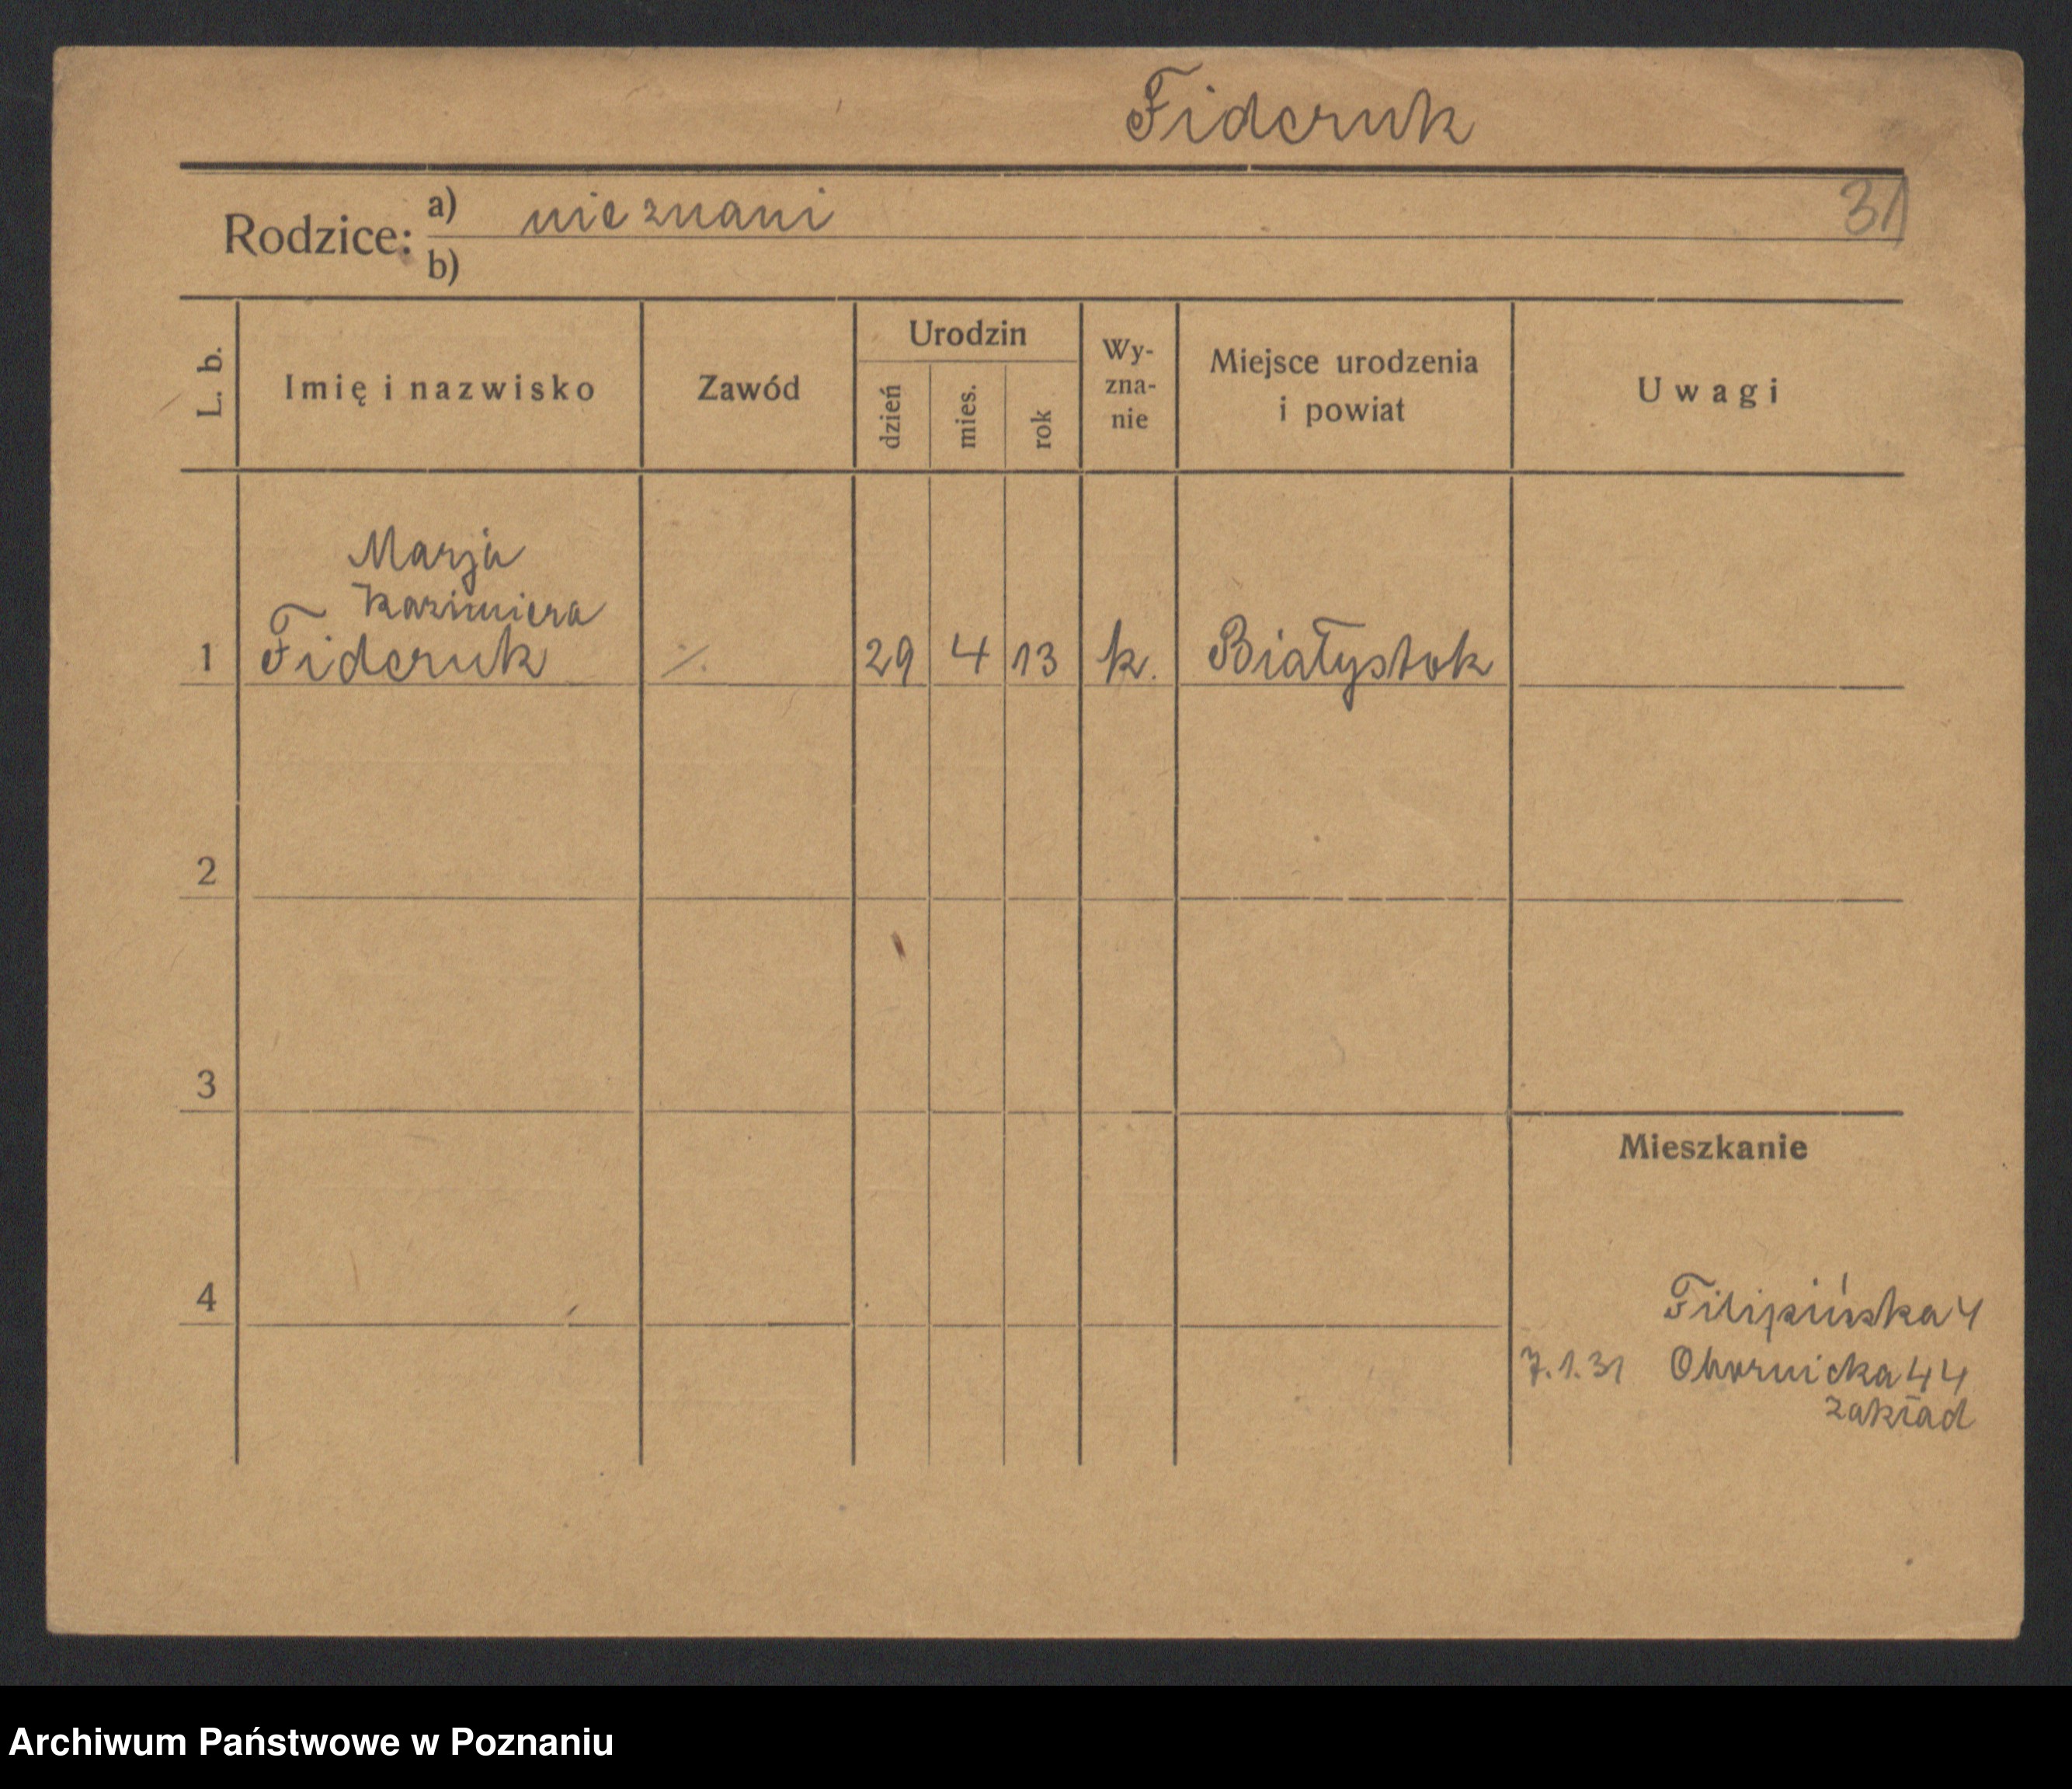 Fideruk
Rodzice: a) nieznani 31
b)
L. b. Imię i nazwisko Zawód Urodzin dzień mies. rok Wy-zna-nie Miejsce urodzenia i powiat Uwagi
Marja
Kazimiera
1 Fideruk ./. 29 4 13 k. Białystok
2
3
Mieszkanie
4
Filipińska 4
7.1.31 Obornicka 44
zakład
Archiwum Państwowe w Poznaniu